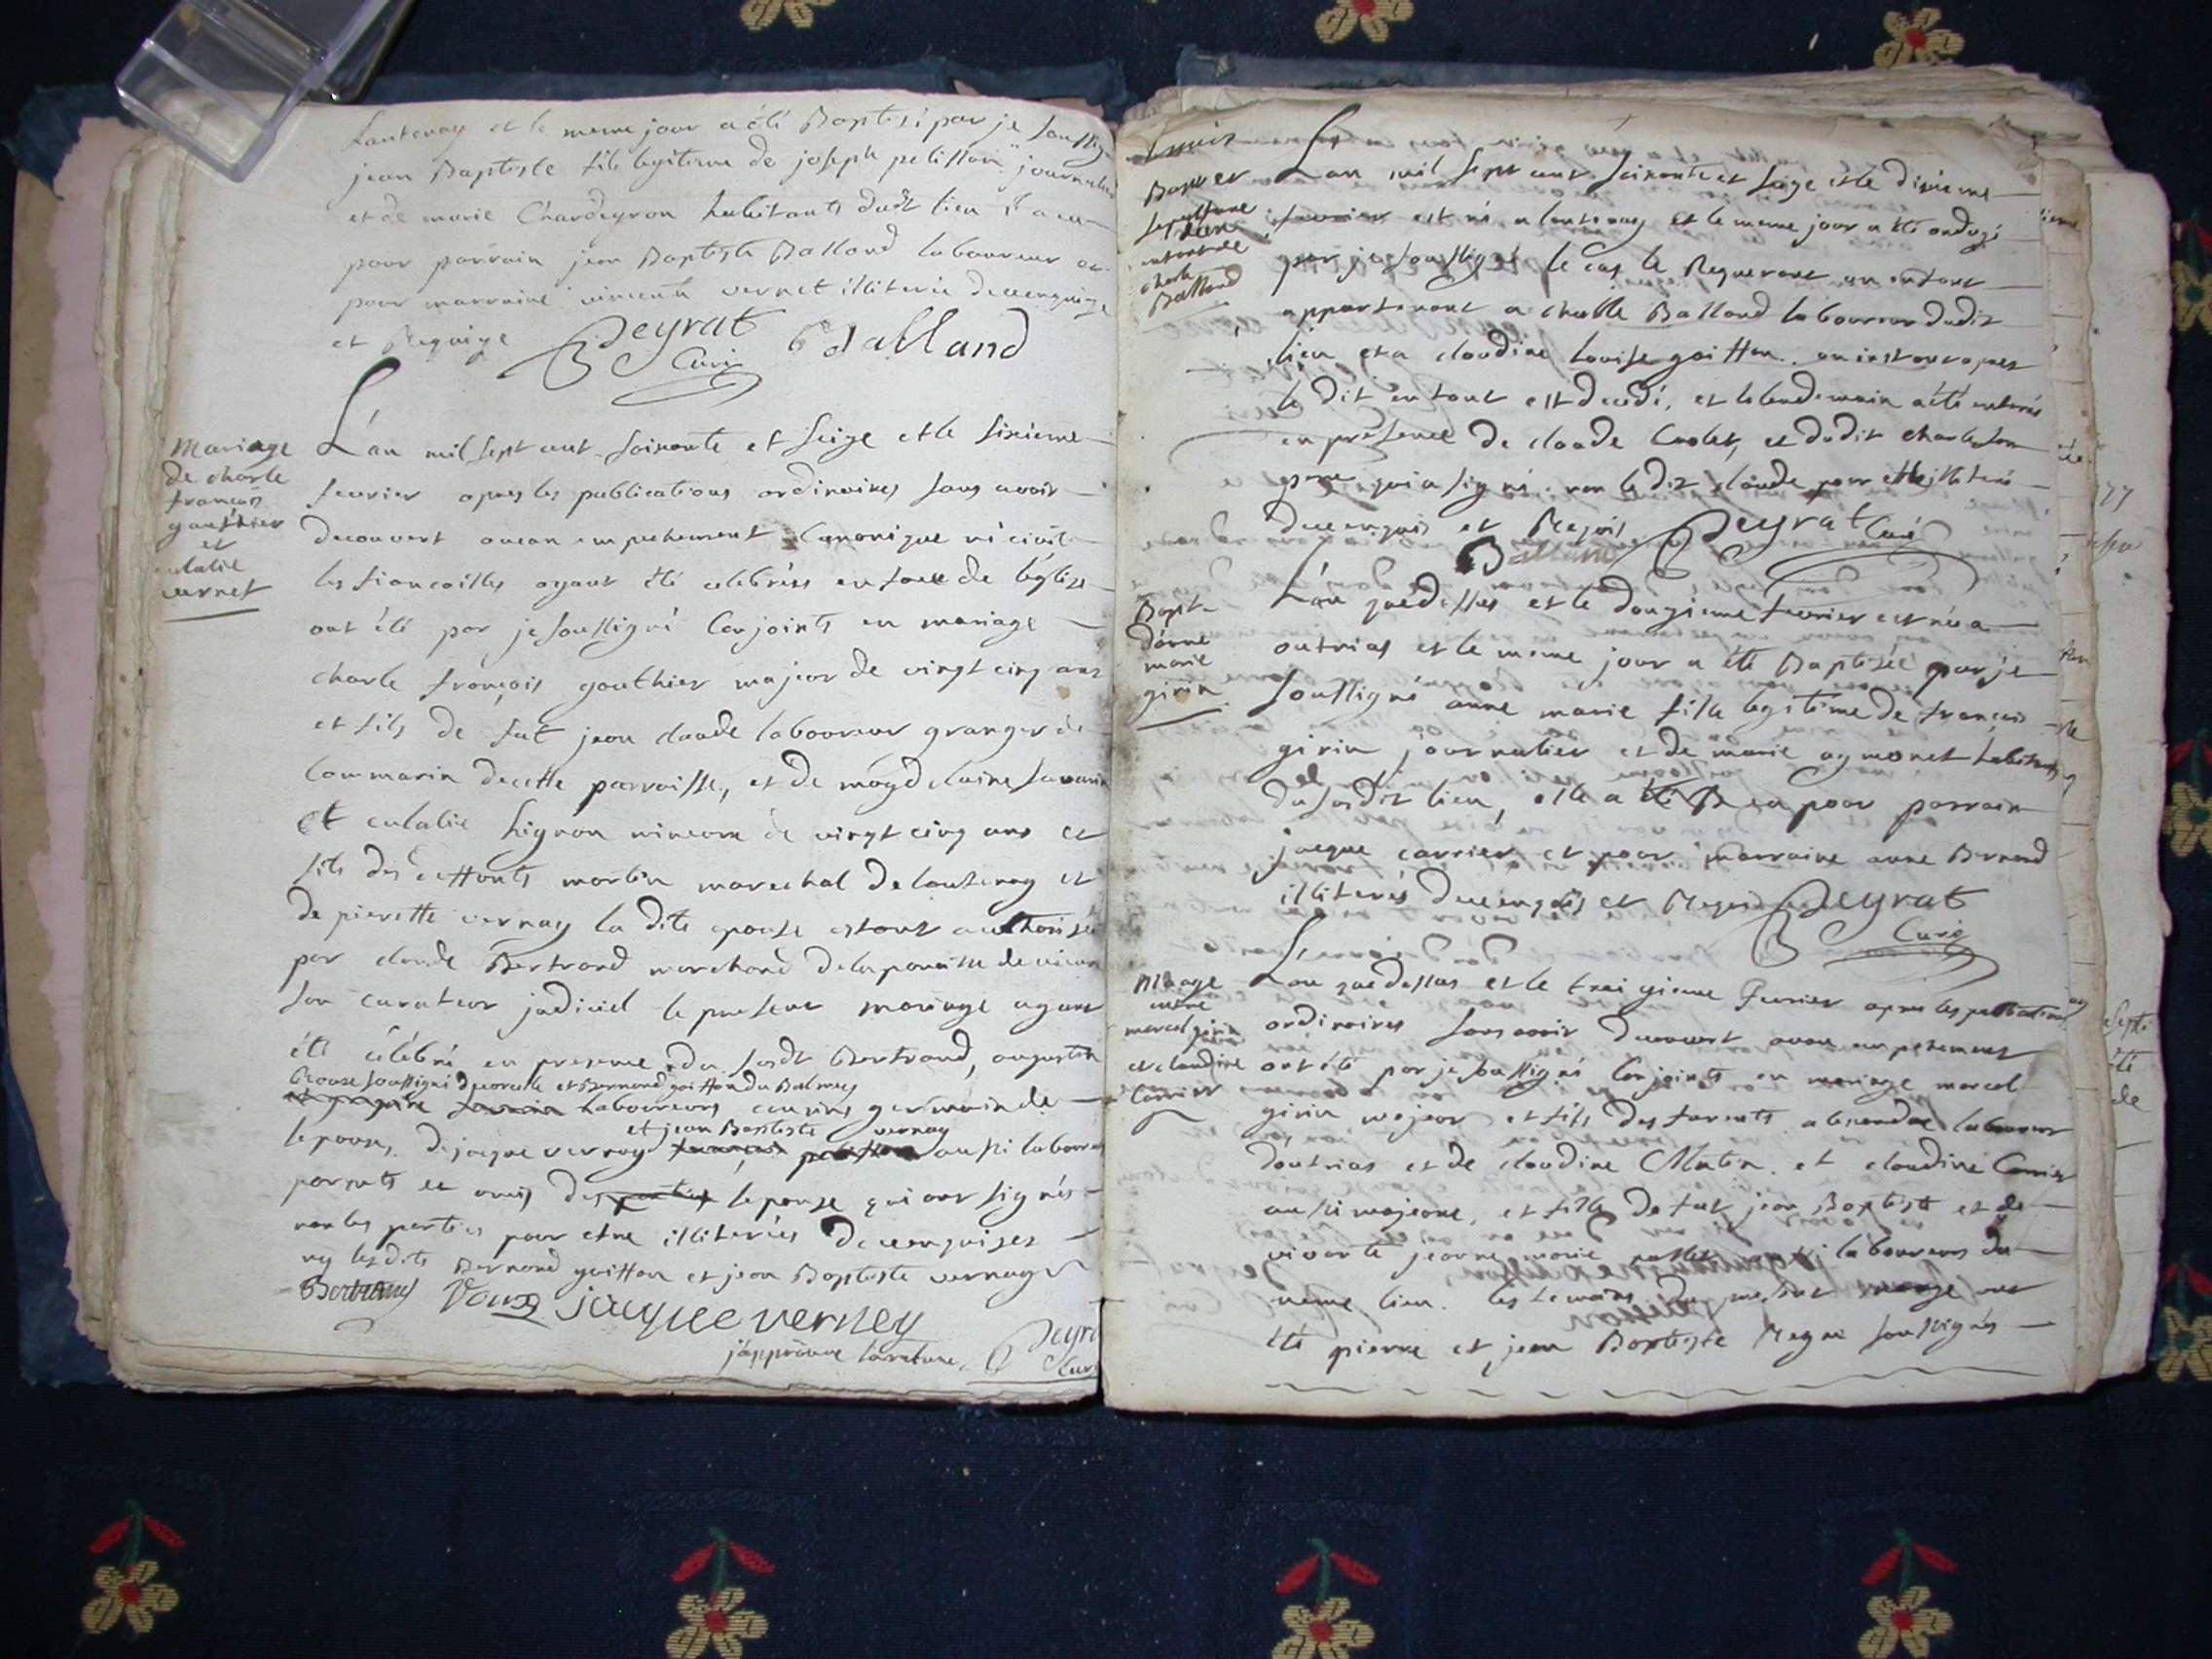 Lantenay et le meme jour a été Baptisé par je soussig
jean Baptiste fils legitime de joseph pelisson journalier
et de marie Chardeyron habitants dudt lieu il a eu
pour parrain jean Baptiste Balland laboureur et
pour marraine vincente vernet illiterée de ce enquise
et Requise Peyrat Curé B Balland
Mariage
de charle
francois
gauthier
et
eulalie
vernet
L'an mil sept cent soixante et seize et le sixieme
fevrier apres les publications ordinaires sans avoir
decouvert aucun empechement Canonique ni civil
les fiancailles ayant été celebrées en face de l'église
ont été par je soussigné Conjoints en mariage
charle françois gauthier majeur de vingt cinq ans
et fils de fut jean claude laboureur granger de
Commarin de cette parroisse, et de magdelaine savarin
et eulalie hignon mineure de vingt cinq ans et
fille des deffonts martin marechal de lantenay et
de pierrette vernay la dite epouse estant authorisée
par claude Bertrand marchand de la paroisse de
son curateur judiciel le present mariage ayant
été célébré en presence du susdt Bertrand, augustin
soussigné et Bernard guitton du Balmey
laboureurs cousins germain de
lepoux, de jaque vernay et jean Baptiste vernay aussi laboureurs
parents et amis de lepouse qui ont signés
non les parties pour etre illiterées de ce enquises
ny les dits Bernard guitton et jean Baptiste vernay
Bertrand jacque verney
j'approuve la rature Peyrat Curé
Bapt et
sepulture
d'un
enfant de
charle
Balland
L'an mil sept cent soixante et seize et le dixieme
fevrier est né a lantenay et le meme jour a été ondoyé
par je soussigné le cas le Requerant un enfant
appartenant a charle Balland laboureur dudit
lieu et a claudine Louise guitton. un instant apres
le dit enfant est decedé, et le lendemain a été enterré
en présence de claude et dudit charle son
pere qui a signé. non le dit claude pour etre illiteré
de ce enquis et Requis Peyrat Curé
Balland
Bapt
d'anne
marie
girin
L'an que dessus et le douzieme fevrier est née a
outrias et le meme jour a été Baptisée par je
soussigné anne marie fille legitime de françois
girin journalier et de marie aymonet habitants
du susdit lieu, elle a eu pour parrain
jacque carrier et pour marraine anne Bernard
illiterés de ce enquis et Requis Peyrat
Curé
Mariage
entre
marcel girin
et claudine
Carrier
L'an que dessus et le treizieme Fevrier apres les publications
ordinaires sans avoir decouvert aucun empechement
ont été par je soussigné Conjoints en mariage marcel
girin majeur et fils des laboureur
d'outrias et de claudine et claudine Carrier
aussi majeure, et fille de fut jean Baptiste et de
vivante jeanne marie laboureurs du
meme lieu. les temoins du present mariage ont
été pierre et jean Baptiste soussignés